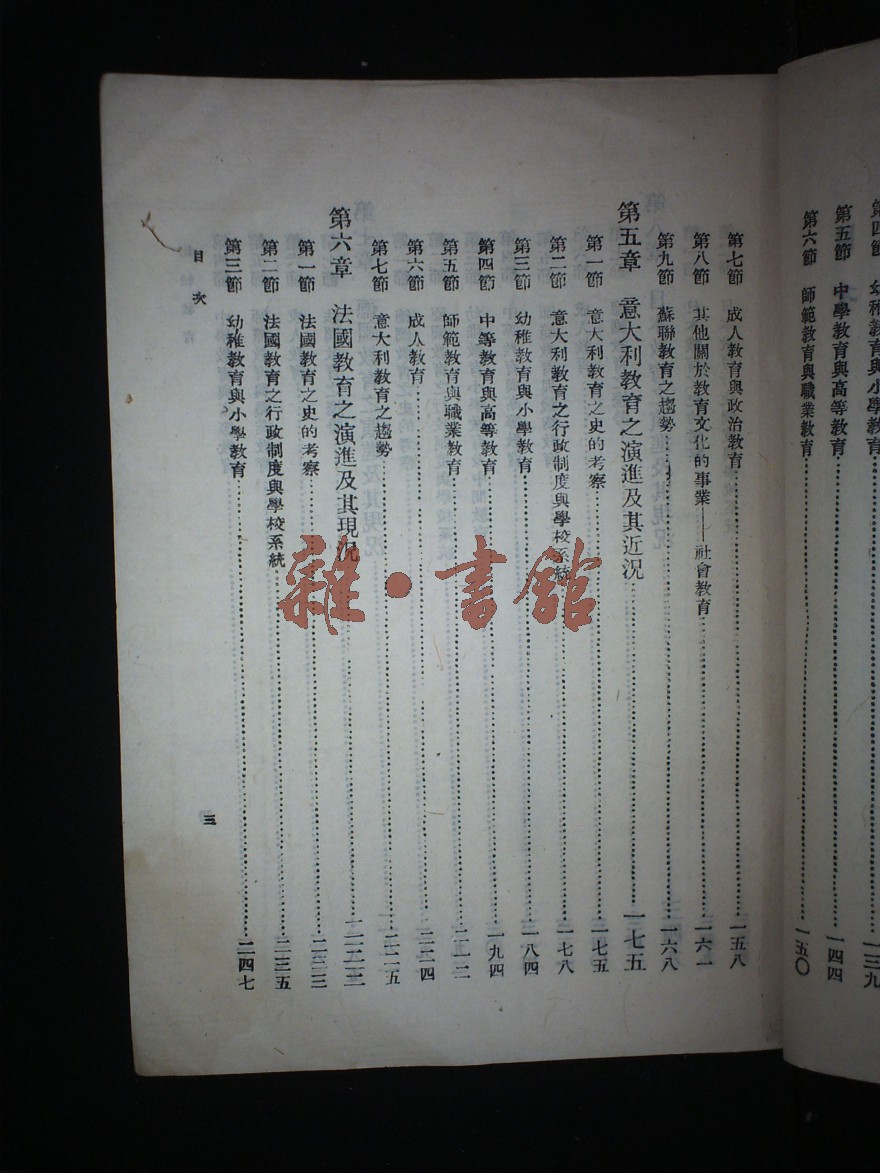 第四節 幼稚教育與小學教育 一三九
第五節 中學教育與高等教育 一四四
第六節 師範教育與職業教育 一五〇
第七節 成人教育與政治教育 一五八
第八節 其他關於教育文化的事業——社會教育 一六一
第九節 蘇聯教育之趨勢 一六八
第五章 意大利教育之演進及其近況 一七五
第一節 意大利教育之史的考察 一七五
第二節 意大利教育之行政制度與學校系統 一七八
第三節 幼稚教育與小學教育 一八四
第四節 中等教育與高等教育 一九四
第五節 師範教育與職業教育
第六節 成人教育
第七節 意大利教育之趨勢
第六章 法國教育之演進及其現況
第一節 法國教育之史的考察
第二節 法國教育之行政制度與學校系統 二三五
第三節 幼稚教育與小學教育 二四七
目次
三
雜·書館